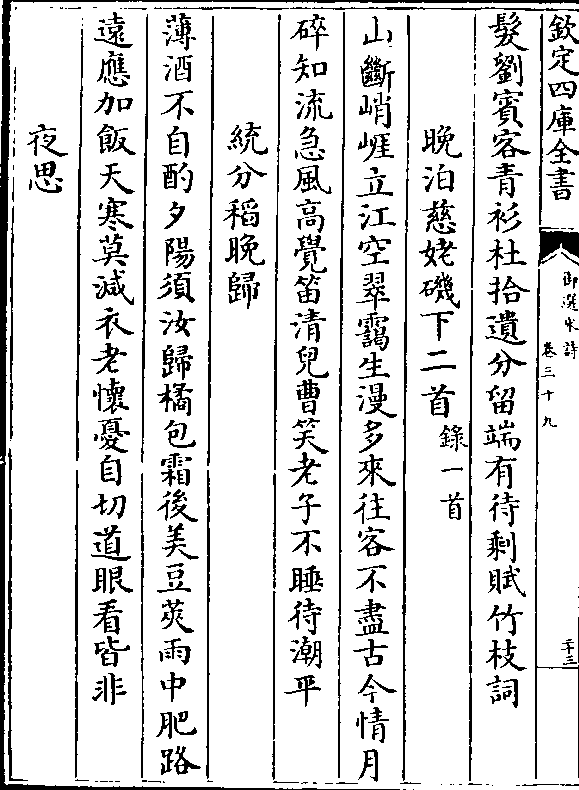 欽定四庫全書
御選宋詩
卷三十九
二十三
髮劉賓客青衫杜拾遺分留端有待剩賦竹枝詞
晚泊慈姥磯下二首錄一首
山斷峭崕立江空翠靄生漫多來往客不盡古今情月
碎知流急風高覺笛清兒曹笑老子不睡待潮平
統分稻晚歸
薄酒不自酌夕陽須汝歸橘包霜後美豆莢雨中肥路
遠應加飯天寒莫減衣老懷憂自切道眼看皆非
夜思